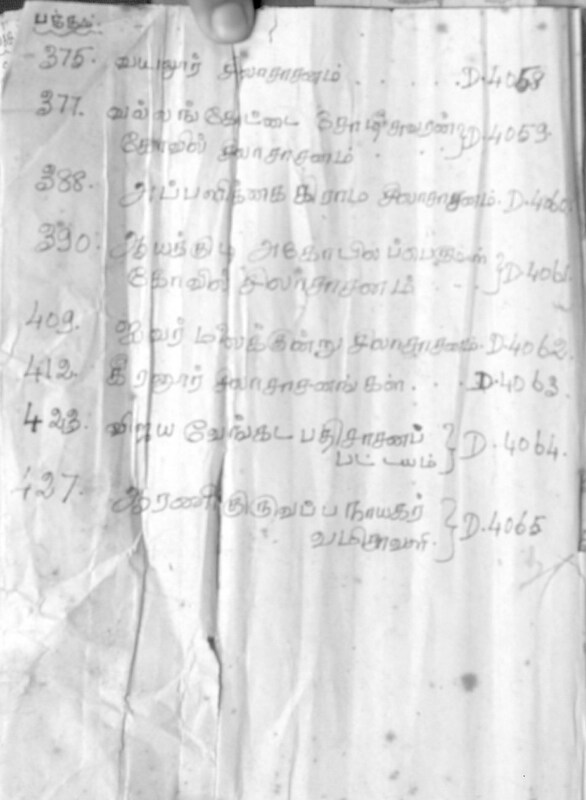 பக்கம்.
375. வயலூர் சிலாசாசனம் . . . . . D.4058
377. வல்லங்கோட்டை கோடீசுவரன்
கோவில் சிலாசாசனம் . . . . } D.4059.
388. அப்பனூத்து கிராம சிலாசாசனம். D.4060.
390. ஆயக்குடி அகோபிலப்பெருமாள்
கோவில் சிலாசாசனம் . . . } D.4061.
409. ஐவர் மலைக்குன்று சிலாசாசனம். D.4062.
412. கீரனூர் சிலாசாசனங்கள். . . . D.4063.
423. விஜய வேங்கட பதி சாசனப்
பட்டயம் } D.4064.
427. ஆரணி குருவப்ப நாயகர்
வமிசாவளி. } D.4065